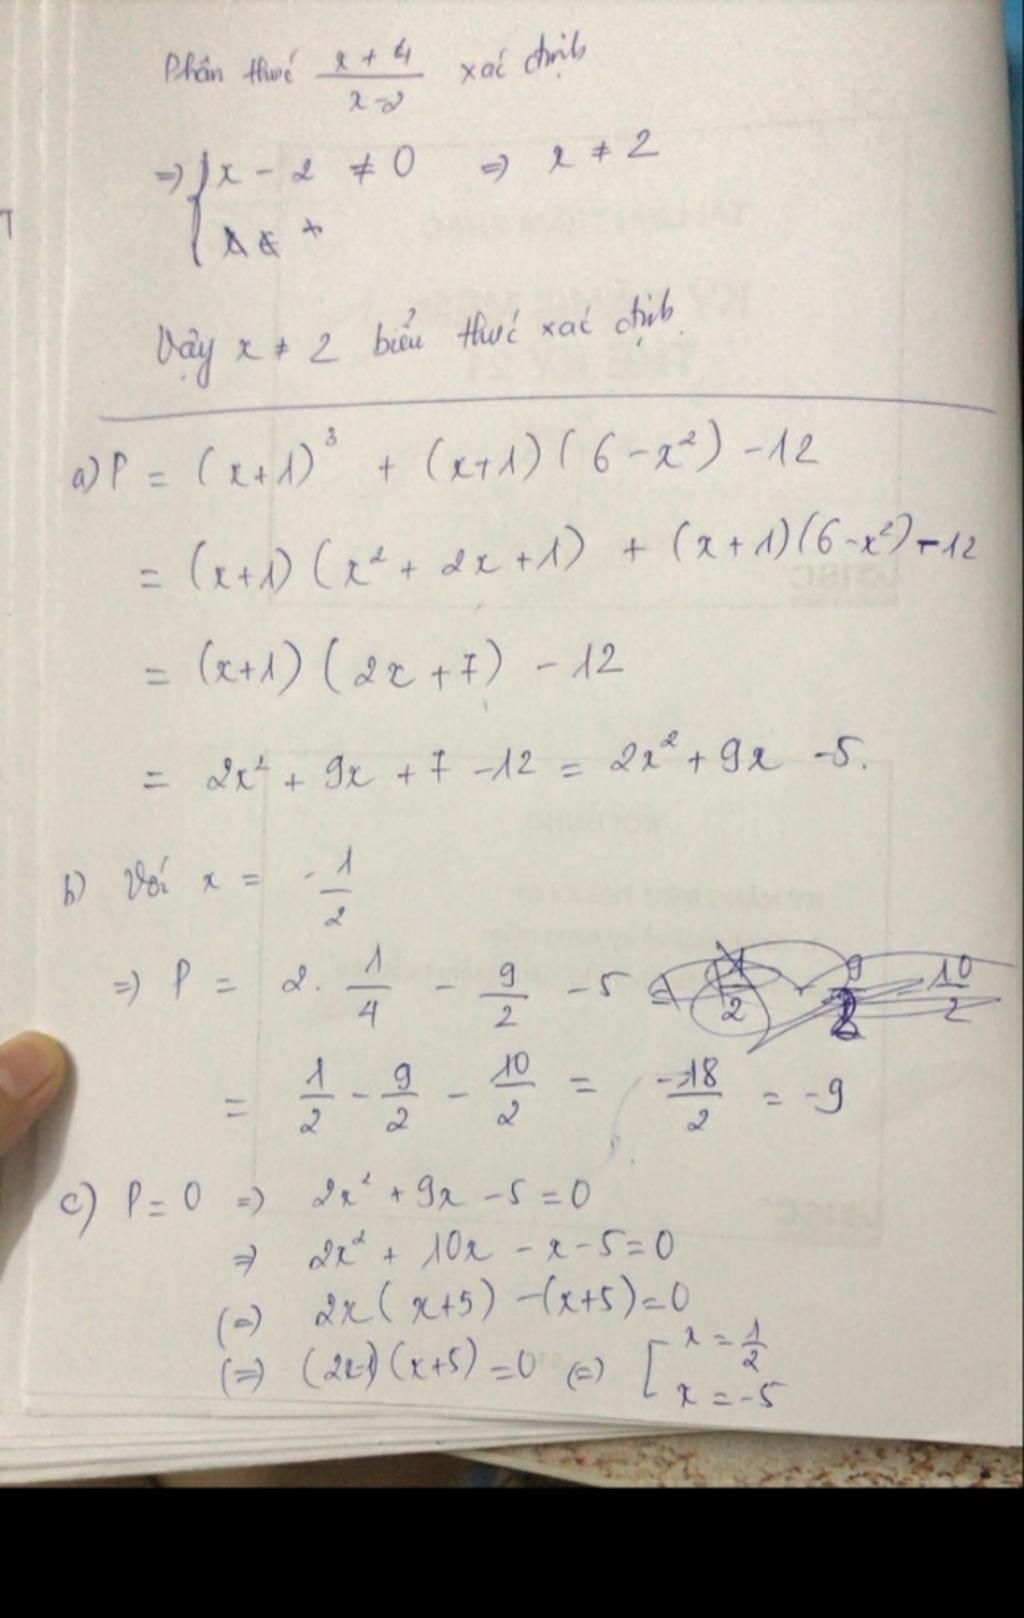 Phân thức x + 4 / x - 2 xác định
=> { x - 2 ≠ 0 => x ≠ 2
Vậy x ≠ 2 biểu thức xác định.
a) P = (x+1)³ + (x+1)(6 - x²) - 12
= (x+1)(x² + 2x + 1) + (x+1)(6-x²) - 12
= (x+1)(2x+7) - 12
= 2x² + 9x + 7 - 12 = 2x² + 9x - 5.
b) Với x = - 1/2
=> P = 2. 1/4 - 9/2 - 5
= 1/2 - 9/2 - 10/2 = -18/2 = -9
c) P = 0 => 2x² + 9x - 5 = 0
=> 2x² + 10x - x - 5 = 0
(=) 2x(x+5) - (x+5) = 0
(=) (2x-1)(x+5) = 0 (=) [ x = 1/2
x = -5